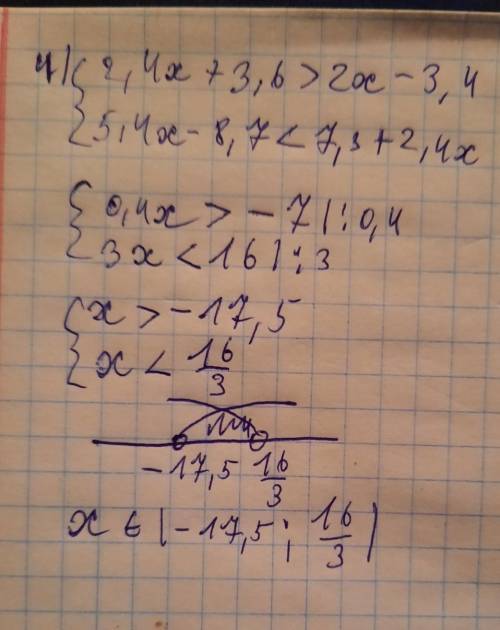 4) { 2,4x + 3,6 > 2x - 3,4
{ 5,4x - 8,7 < 7,3 + 2,4x
{ 0,4x > -7 | : 0,4
{ 3x < 16 | : 3
{ x > -17,5
{ x < 16/3
-17,5 16/3
x ∈ (-17,5 ; 16/3)